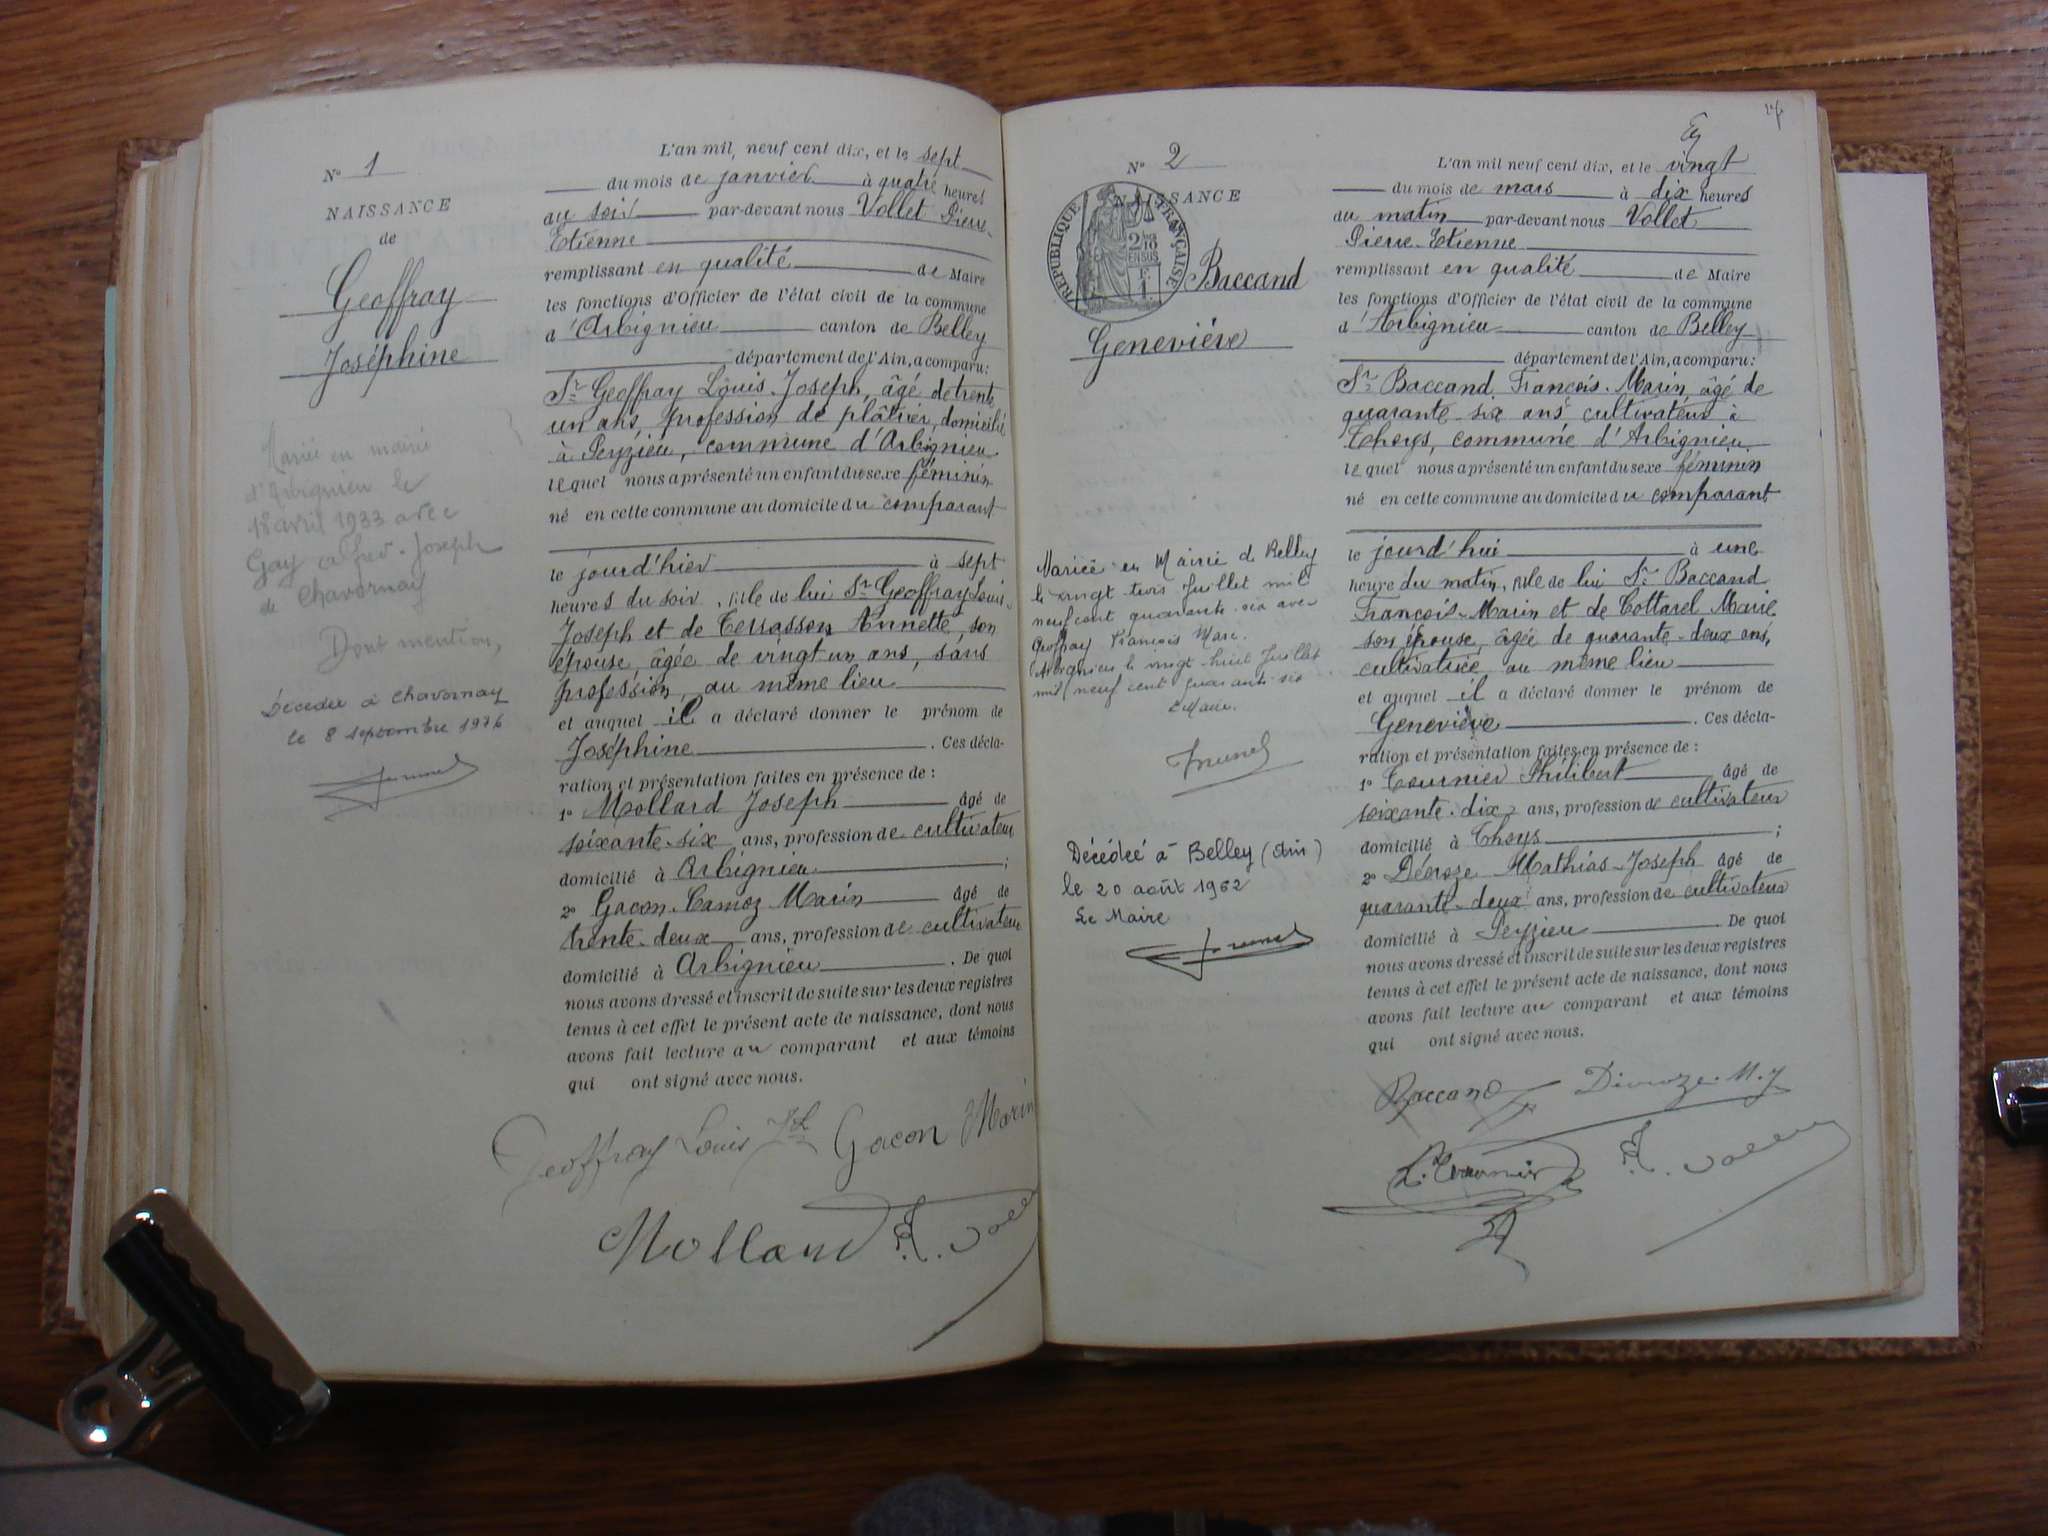 N° 1
NAISSANCE
de
Geoffray
Joséphine
Mariée en mairie
d'Arbignieu le
18 avril 1933 avec
Gay Alfred-Joseph
de Chavornay
Dont mention,
Décédée à Chavornay
le 8 septembre 1976
L'an mil neuf cent dix, et le sept
du mois de janvier à quatre heures
du soir par-devant nous Vollet Pierre-
Etienne
remplissant en qualité de Maire
les fonctions d'Officier de l'état civil de la commune
d'Arbignieu canton de Belley
département de l'Ain, a comparu:
Sr Geoffray Louis-Joseph, âgé de trente
un ans, profession de plâtrier, domicilié
à Peyzieu, commune d'Arbignieu
lequel nous a présenté un enfant du sexe féminin
né en cette commune au domicile du comparant
le jourd'hier à sept
heures du soir, fille de lui Sr Geoffray Louis-
Joseph et de Terrasson Annette, son
épouse, âgée de vingt-un ans, sans
profession, au même lieu
et auquel il a déclaré donner le prénom de
Joséphine. Ces décla-
ration et présentation faites en présence de :
1° Mollard Joseph âgé de
soixante-six ans, profession de cultivateur
domicilié à Arbignieu;
2° Gacon-Camoz Marin âgé de
trente-deux ans, profession de cultivateur
domicilié à Arbignieu. De quoi
nous avons dressé et inscrit de suite sur les deux registres
tenus à cet effet le présent acte de naissance, dont nous
avons fait lecture au comparant et aux témoins
qui ont signé avec nous.
Geoffray Louis Gacon Marin
Mollard
N° 2
NAISSANCE
RÉPUBLIQUE FRANÇAISE
2/10 EN SUS
Baccand
Geneviève
Mariée en Mairie de Belley
le vingt trois Juillet mil
neuf cent quarante-six avec
Geoffray François Marc.
Arbignieu le vingt-huit Juillet
mil neuf cent quarante six
Le Maire.
Brunel
Décédée à Belley (Ain)
le 20 août 1962
Le Maire
L'an mil neuf cent dix, et le vingt
du mois de mars à dix heures
du matin par-devant nous Vollet
Pierre-Etienne
remplissant en qualité de Maire
les fonctions d'Officier de l'état civil de la commune
d'Arbignieu canton de Belley
département de l'Ain, a comparu:
Sr Baccand François-Marin, âgé de
quarante-six ans cultivateur à
Thoys, commune d'Arbignieu
lequel nous a présenté un enfant du sexe féminin
né en cette commune au domicile du comparant
le jourd'hui à une
heure du matin, fille de lui Sr Baccand
François-Marin et de Cottarel Marie
son épouse, âgée de quarante-deux ans,
cultivatrice, au même lieu
et auquel il a déclaré donner le prénom de
Geneviève. Ces décla-
ration et présentation faites en présence de :
1° Tournier Philibert âgé de
soixante-dix ans, profession de cultivateur
domicilié à Thoys;
2° Mathias-Joseph âgé de
quarante-deux ans, profession de cultivateur
domicilié à Peyzieu. De quoi
nous avons dressé et inscrit de suite sur les deux registres
tenus à cet effet le présent acte de naissance, dont nous
avons fait lecture au comparant et aux témoins
qui ont signé avec nous.
Baccand